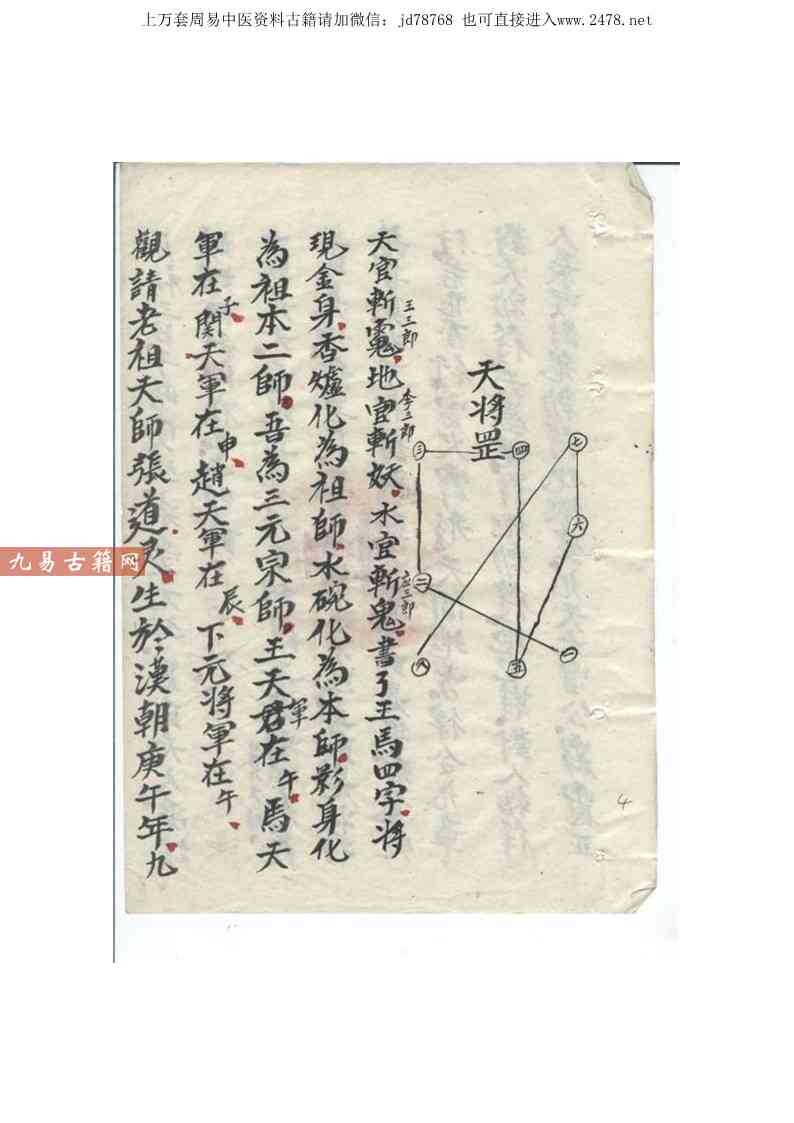 上万套周易中医资料古籍请加微信：jd78768 也可直接进入www.2478.net
天将罡
七
六
四
三
二
一
五
八
天官斬鬼地官斬妖水官斬鬼書了王馬四字将
王三郎
李三郎
应三郎
現金身香爐化為祖師水碗化為本師影身化
為祖本二師吾為三元宗師王天君在午馬天
軍
軍在子関天軍在申趙天軍在辰下元将軍在午
觀請老祖天師張道灵生於漢朝庚午年九
九易古籍网
4